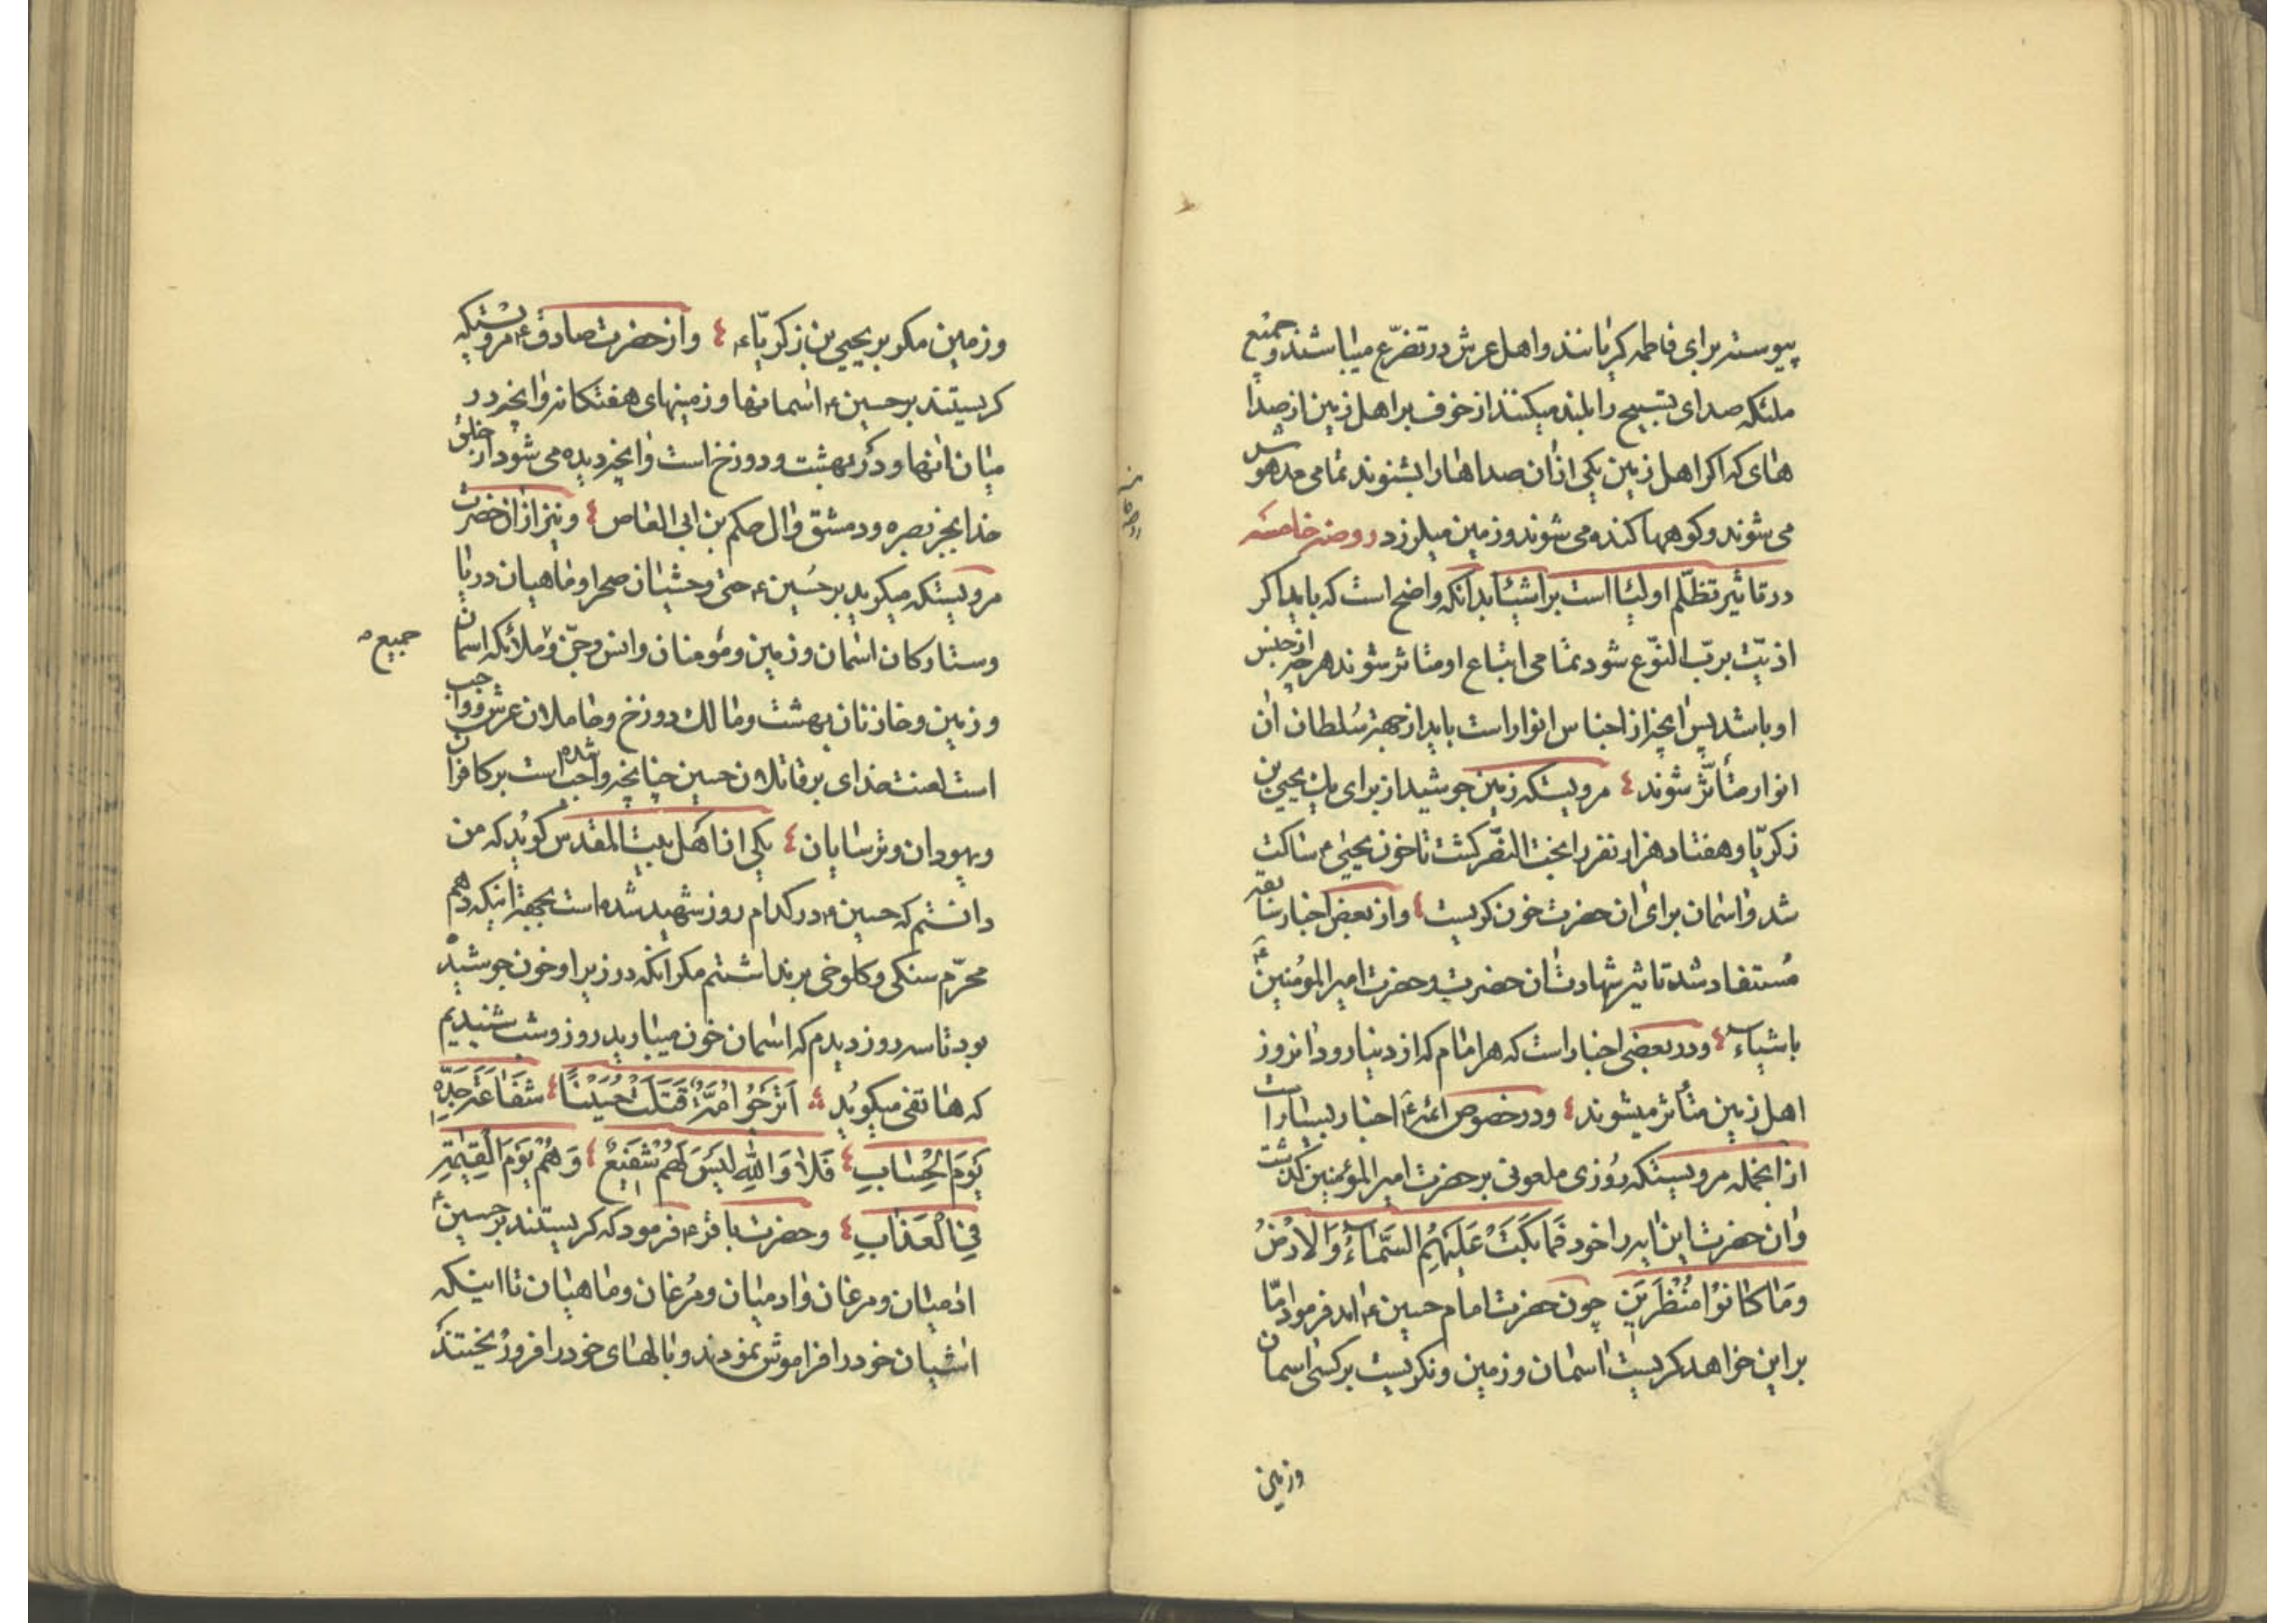 پیوسته برای فاطمه کریانند و اهل عرش در تضرّع میباشند و جمیع
ملئکه صدای بتسبیح را بلند میکنند از خوف بر اهل زمین از صدا
های که اکر اهل زمین یکی از ان صداها را بشنوند تمامی مدهوش
می شوند و کوهها کنده می شوند و زمین میلرزد روضه خامسه
در تاثیر تظلّم اولیا است بر اشیا بدانکه واضح است که باید اکر
اذیّت بربّ النّوع شود تمامی اتباع او متاثر شوند هرچه از جنس
او باشد پس انچه از اجناس انوار است باید از جهة سُلطان ان
انوار متأثّر شوند ٤ مرویستکه زمین جوشید از برای یحیی بن
زکریّا و هفتاد هزار نفر را بخت النصّر کشت تا خون یحیی م ساکت
شد و اسمان برای ان حضرت خون کریست ٤ و از بعض اخبار سابقه
مُستفاد شده تاثیر شهادت ان حضرت و حضرت امیر المؤمنین ع
باشیاء ٤ و در بعضی اخبار است که هر امام که از دنیا رود انروز
اهل زمین متأثر میشوند ٤ و در خصوص ائمه ع اخبار بسیار است
از انجمله مرویستکه روزی ملعونی بر حضرت امیر المؤمنین کذشت
و ان حضرت این ایه را خود فَمَا بَكَتْ عَلَيْهِمُ السَّمَاءُ وَالْاَرْضُ
وَمَا كَانُوْا مُنْظَرِيْنَ چون حضرت امام حسین ع امد فرمود امّا
بر این خواهد کریست اسمان و زمین و نکریست بر کسی اسمان
و زمین
و زمین مکر بر یحیی بن زکریّاء ع ٤ و از حضرت صادق ع مرویستکه
کریستند بر حسین ع اسمانها و زمینهای هفتکانه و انچه در
میان انها و در بهشت و دوزخ است و انچه دیده می شود از خلق
خدا بجز بصره و دمشق و ال حکم بن ابی العاص ٤ و نیز از ان حضرت
مرویستکه میکرید بر حُسین ع حتی وحشیان صحرا و ماهیان دریا
و ستارکان اسمان و زمین و مؤمنان و انس و جنّ و ملائکه اسمان
جمیع
و زمین و خازنان بهشت و مالک دوزخ و حاملان عرش و واجب
است لعنت خدای بر قاتلان حسین چنانچه واجب شده است بر کافران
و یهودان و ترسایان ٤ یکی از اهل بیت المقدس کوید که من
دانستم که حسین ع در کدام روز شهید شده است بجهة انیکه دهم
محرّم سنکی و کلوخی برنداشتم مکر انکه در زیر او خون جوشیده
بود تا سه روز دیدم که اسمان خون میبارید روز و شب شنیدیم
که هاتفی میکوید ٤ اَتَرْجُوْ اُمَّةٌ قَتَلَتْ حُسَيْنًا ٤ شَفَاعَةَ جَدِّهِ
يَوْمَ الْحِسَابِ ٤ فَلَا وَاللهِ لَيْسَ لَهُمْ شَفِيْعٌ ٤ وَهُمْ يَوْمَ الْقِيٰمَةِ
فِي الْعَذَابِ ٤ و حضرت باقر ع فرمود که کریستند بر حسین ع
ادمیان و مرغان و ادمیان و مُرغان و ماهیان تا اینکه
اشیان خود را فراموش نمودند و بالهای خود را فرو ریختند